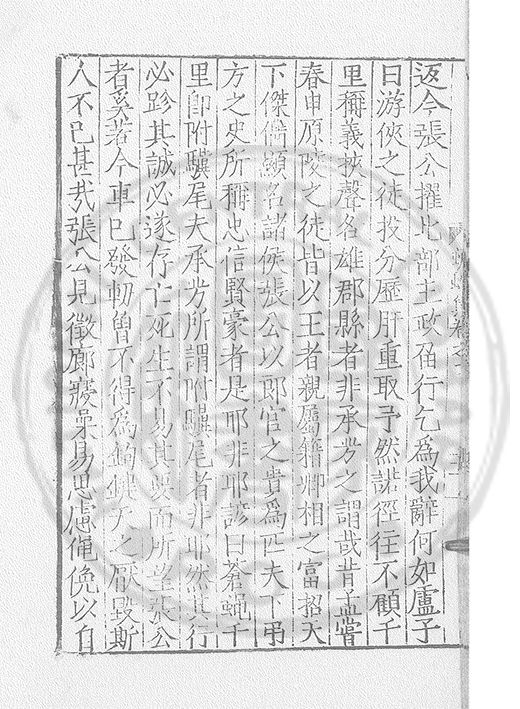 返今張公擢比部主政召行乞為我辭何如盧子
曰游俠之徒投分歷肝重取予然諾徑往不顧千
里稱義挾聲名雄郡縣者非承芳之謂哉昔孟嘗
春申原陵之徒皆以王者親屬籍卿相之富招天
下傑儔顯名諸侯張公以一郎官之貴為匹夫下弔
方之史所稱忠信賢豪者是耶非耶諺曰蒼蠅千
里即附驥尾夫承芳所謂附驥尾者非耶然其行
必跡其誠必遂存亡死生不易其要而所望張公
者奚若今車已發軔曾不得為鍧鍵 之厭毀斯
人不已甚哉張公見徵廊寢梟易思慮俛俛以自